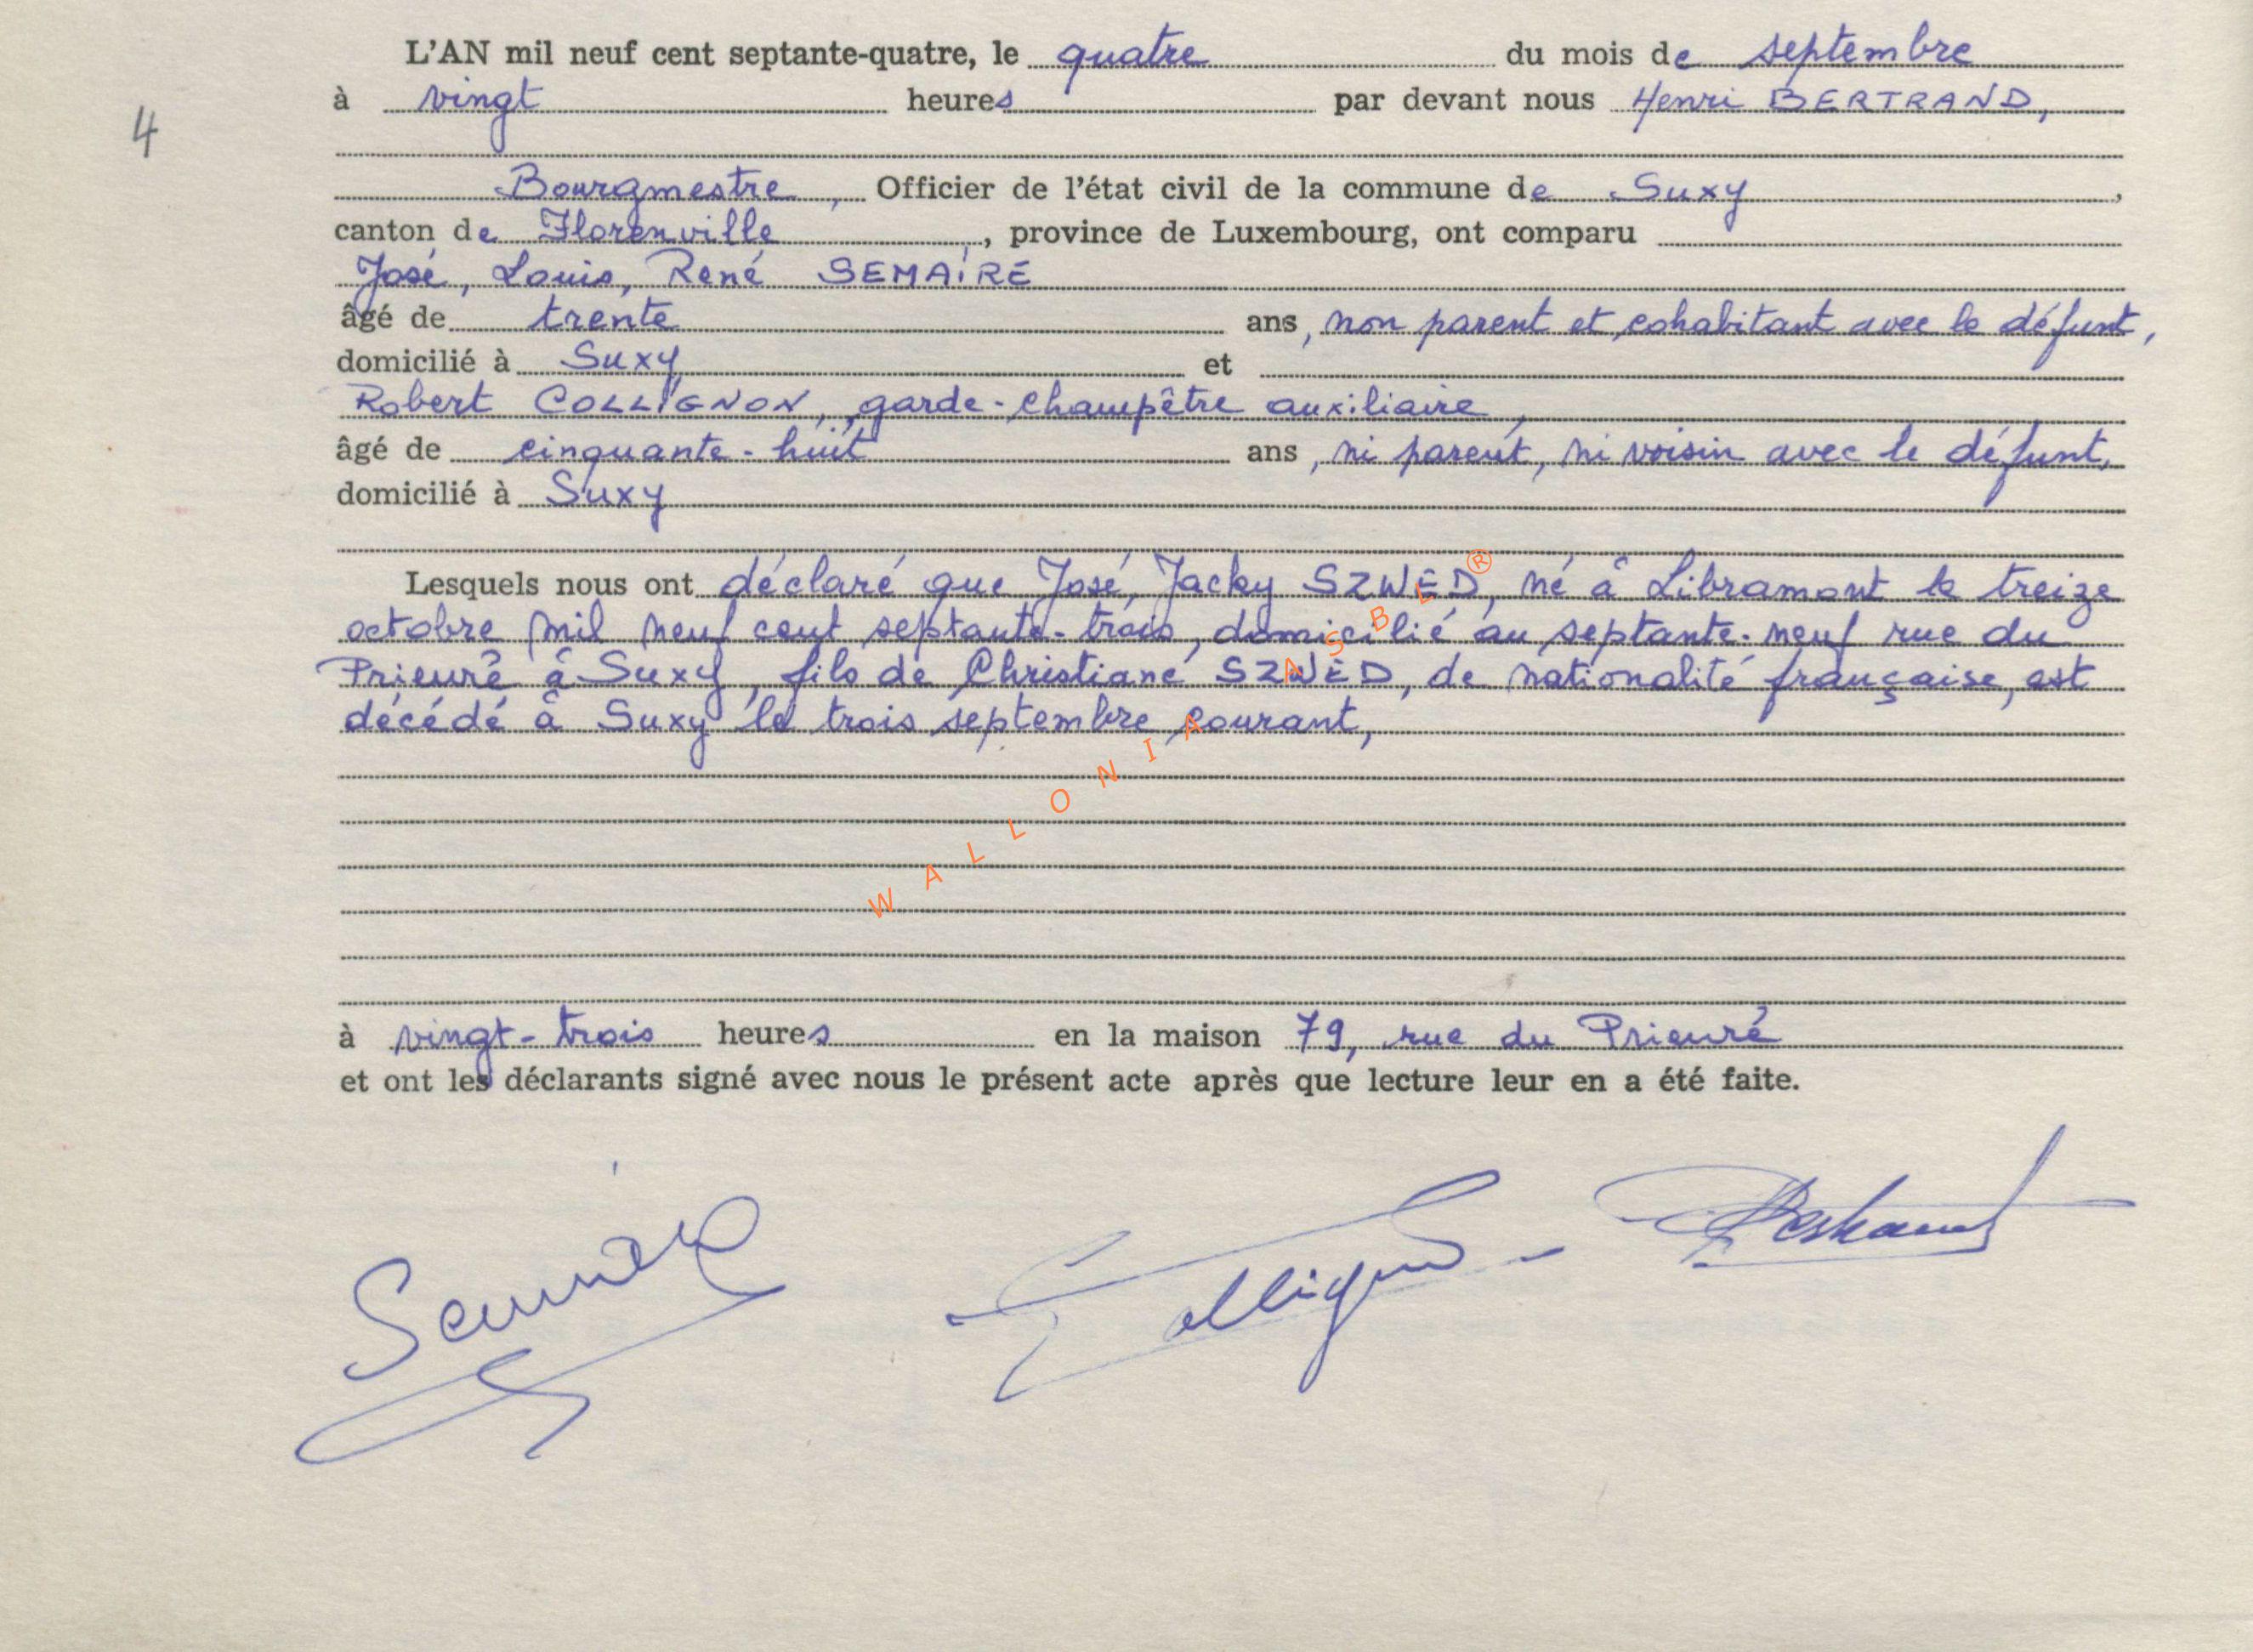 L'AN mil neuf cent septante-quatre, le quatre du mois de septembre
4
à vingt heures par devant nous Henri BERTRAND,
Bourgmestre, Officier de l'état civil de la commune de Suxy,
canton de Florenville, province de Luxembourg, ont comparu
José, Louis, René SEMAIRE
âgé de trente ans, non parent et cohabitant avec le défunt,
domicilié à Suxy et
Robert COLLIGNON, garde-champêtre auxiliaire,
âgé de cinquante-huit ans, ni parent, ni voisin avec le défunt,
domicilié à Suxy
Lesquels nous ont déclaré que José, Jacky SZWED, né à Libramont le treize
octobre mil neuf cent septante-trois, domicilié au septante-neuf rue du
Prieuré à Suxy, fils de Christiane SZWED, de nationalité française, est
décédé à Suxy le trois septembre courant,
WALLONIA ASBL ®
à vingt-trois heures en la maison 79, rue du Prieuré
et ont les déclarants signé avec nous le présent acte après que lecture leur en a été faite.
Semaire Collignon Bertrand